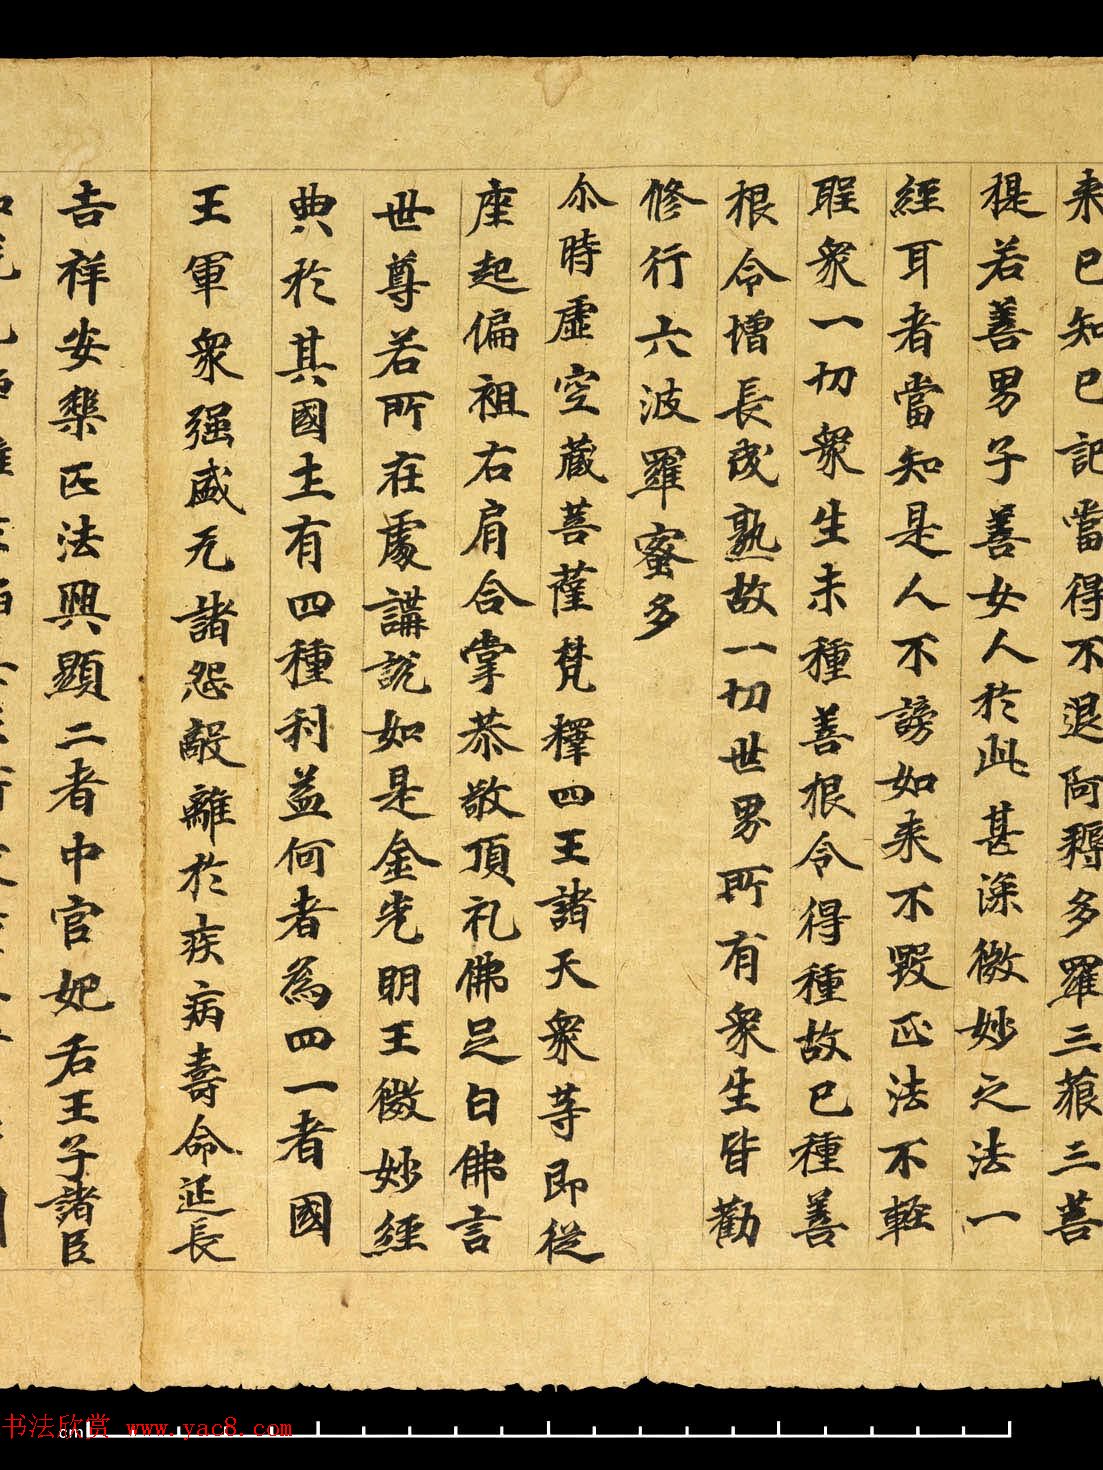 来已知已記當得不退阿耨多羅三藐三菩
提若善男子善女人於此甚深微妙之法一
經耳者當知是人不謗如来不毀正法不輕
聖衆一切衆生未種善根令得種故已種善
根令增長成熟故一切世界所有衆生皆勸
修行六波羅蜜多
尒時虛空藏菩薩梵釋四王諸天衆等即從
座起偏袒右肩合掌恭敬頂礼佛足白佛言
世尊若所在處講說如是金光明王微妙經
典於其國土有四種利益何者為四一者國
王軍衆强盛无諸怨敵離於疾病壽命延長
吉祥安樂正法興顯二者中宮妃后王子諸臣
cm
书法欣赏 www.yac8.com